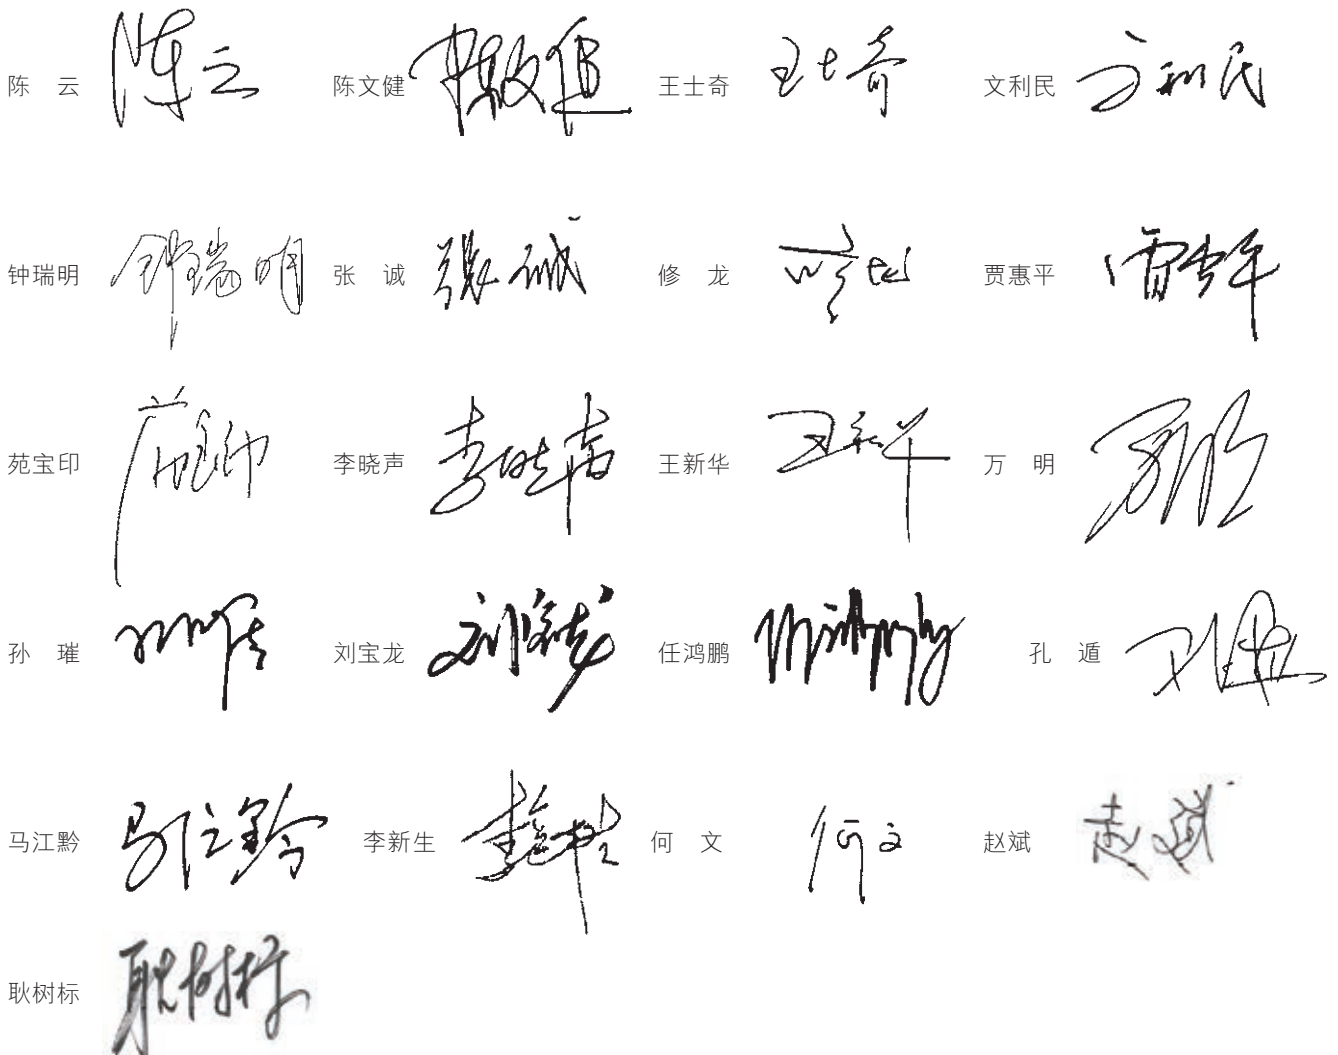 陈　云 陈云 陈文健 陈文健 王士奇 王士奇 文利民 文利民
钟瑞明 钟瑞明 张　诚 张诚 修　龙 修龙 贾惠平 贾惠平
苑宝印 苑宝印 李晓声 李晓声 王新华 王新华 万　明 万明
孙　璀 孙璀 刘宝龙 刘宝龙 任鸿鹏 任鸿鹏 孔　遁 孔遁
马江黔 马江黔 李新生 李新生 何　文 何文 赵斌 赵斌
耿树标 耿树标